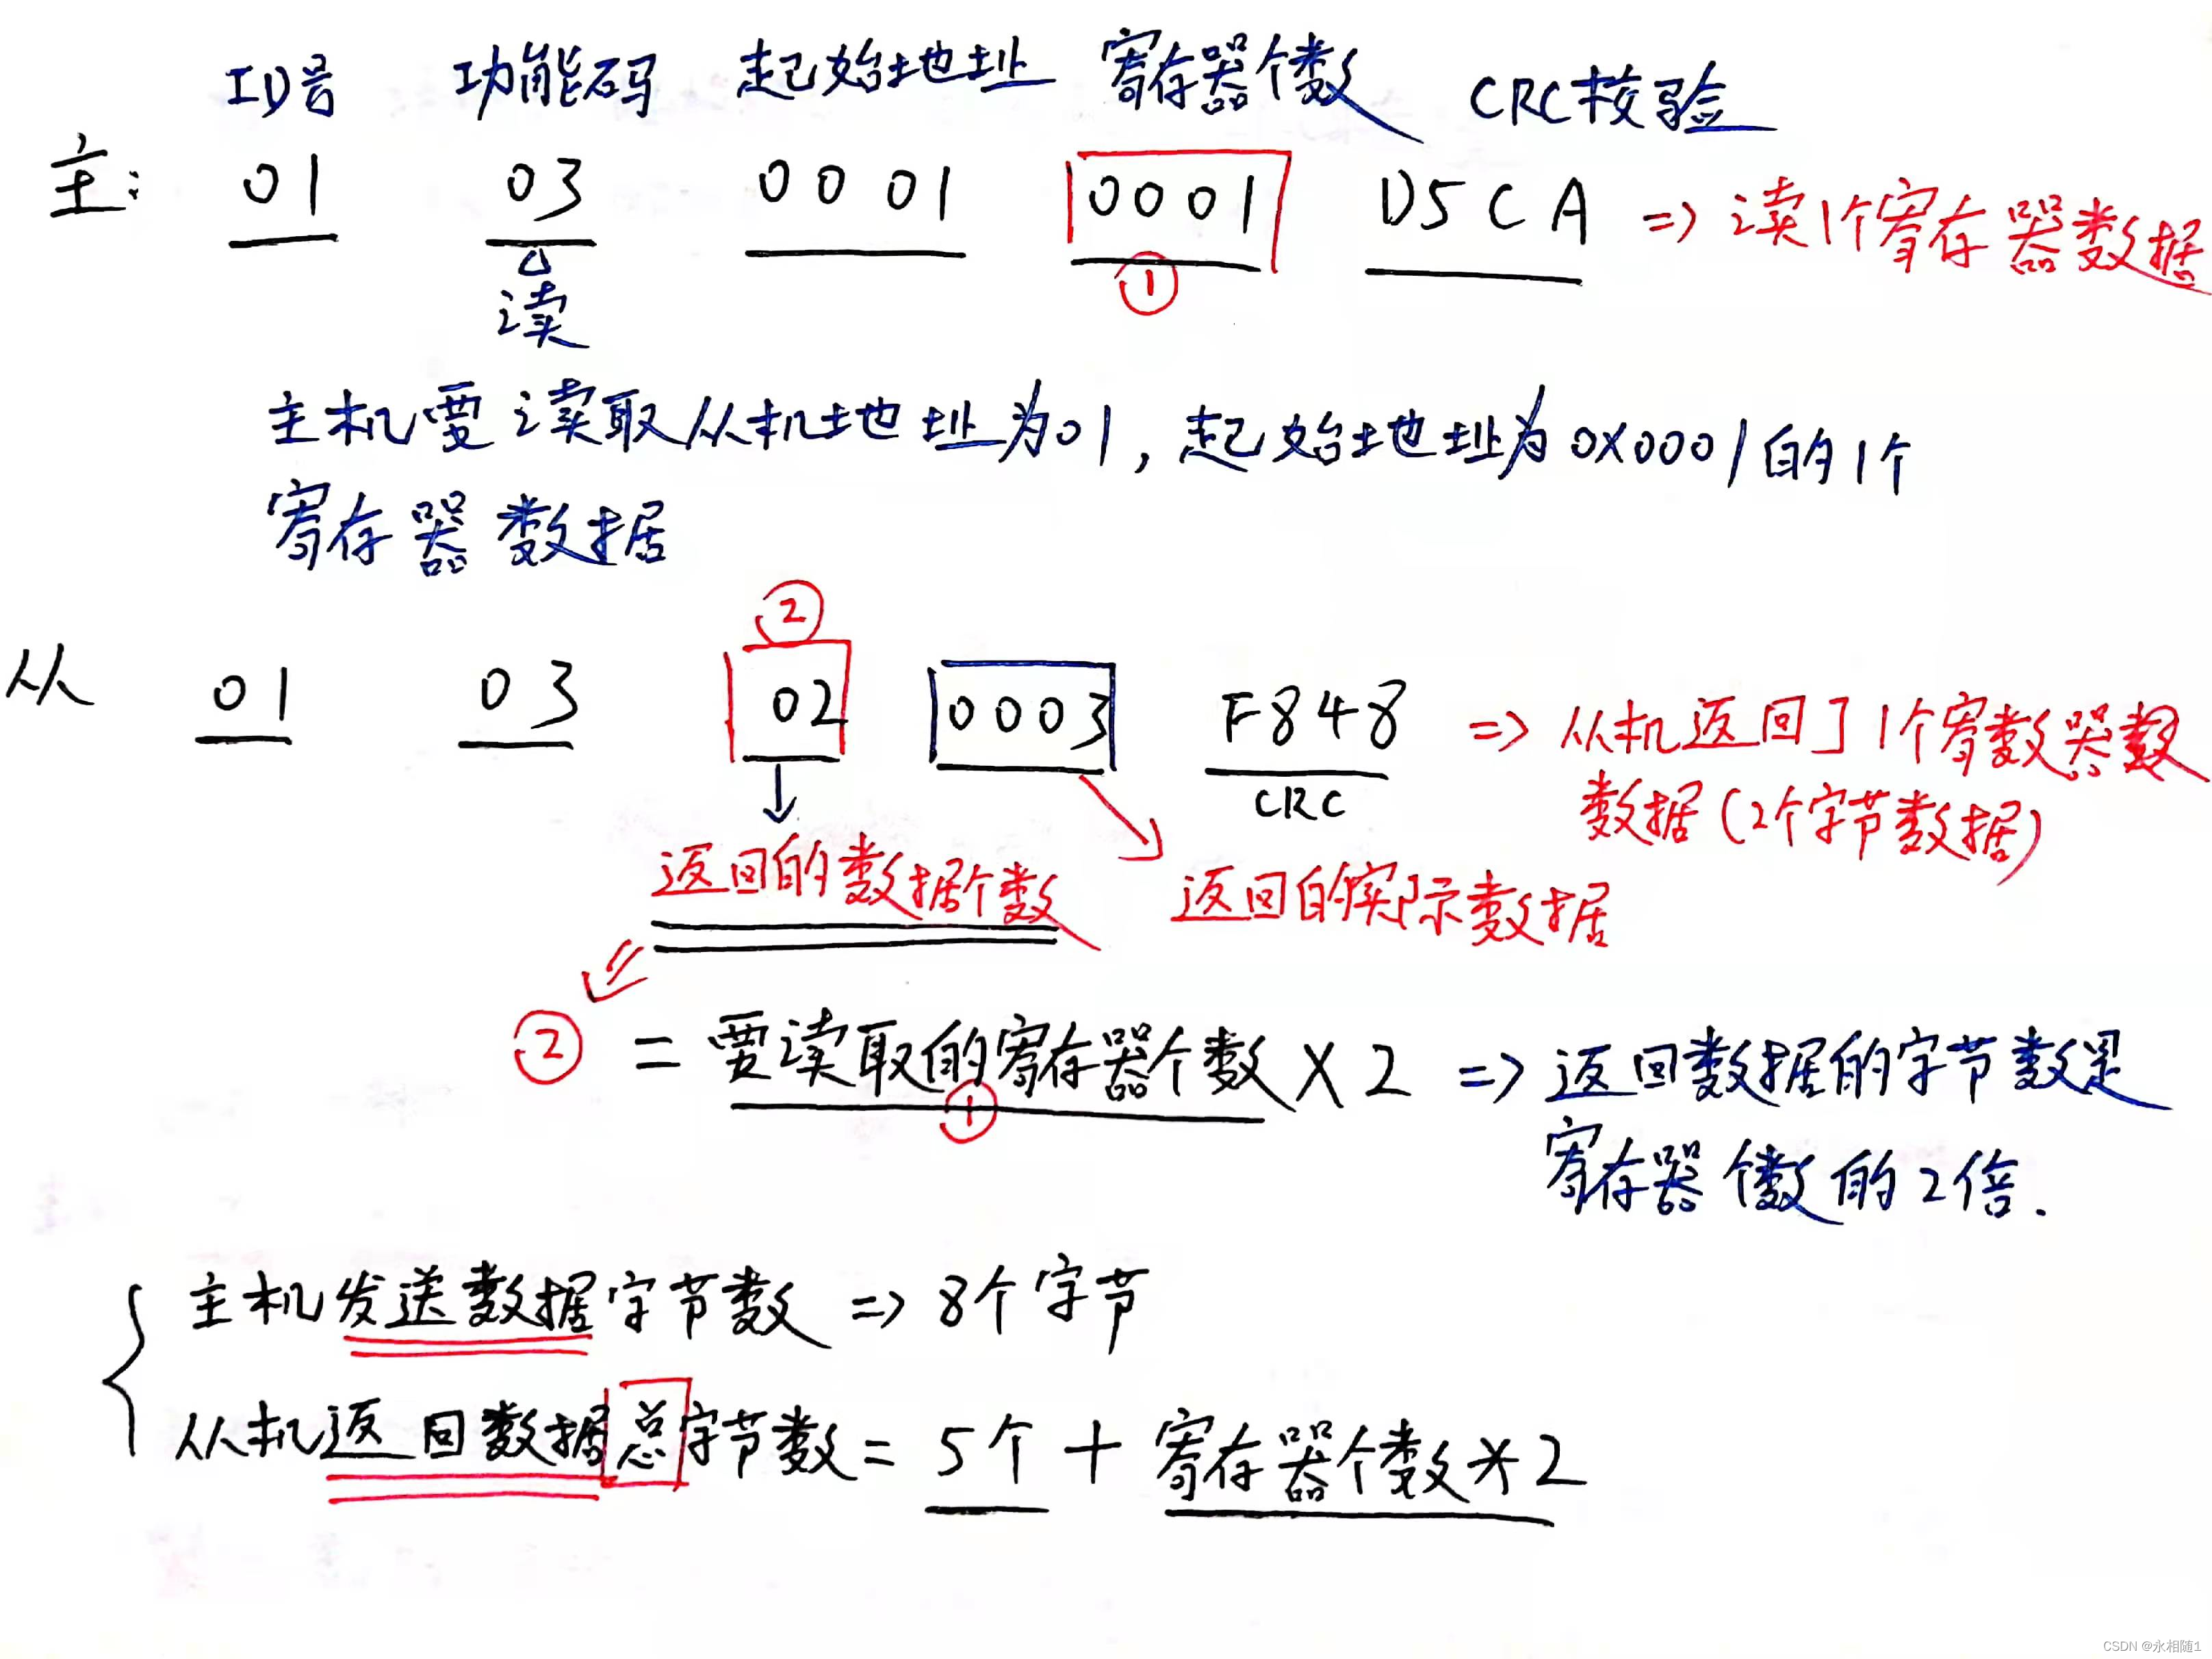 ID号 功能码 起始地址 寄存器个数 CRC校验
主: 01 03 0001 0001 D5CA => 读1个寄存器数据
读 ①
主机要读取从机地址为01,起始地址为0X0001的1个
寄存器数据
②
从 01 03 02 0003 F848 => 从机返回了1个寄数器数
CRC 数据(2个字节数据)
返回的数据个数 返回的实际数据
② = 要读取的寄存器个数 X 2 => 返回数据的字节数是
① 寄存器个数的2倍.
主机发送数据字节数 => 8个字节
从机返回数据总字节数 = 5个 + 寄存器个数*2
CSDN @永相随1